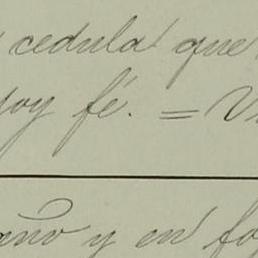 cedula que
doy fé. =
año y en